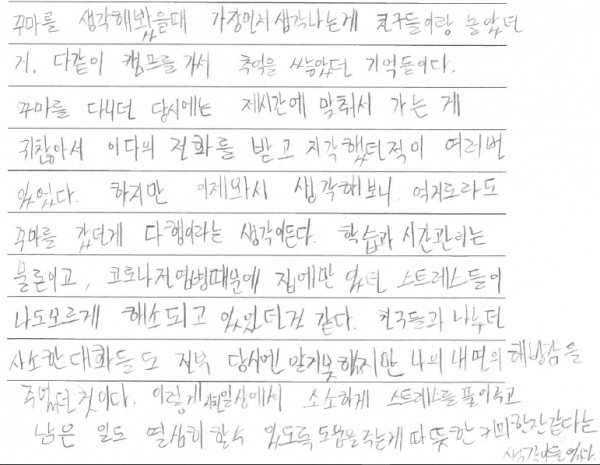 꾸마를 생각해봤을때 가장먼저 생각나는게 친구들이랑 놀았던
거, 다같이 캠프를 가서 추억을 쌓았던 기억들이다.
꾸마를 다니던 당시에는 제시간에 맞춰서 가는 게
귀찮아서 이다의 전화를 받고 지각했던적이 여러번
있었다. 하지만 이제와서 생각해보니, 억지로라도
꾸마를 갔던게 다행이라는 생각이든다. 학습과 시간관리는
물론이고, 코로나전염병때문에 집에만 있던 스트레스들이
나도모르게 해소되고 있었던것 같다. 친구들과 나누던
사소한 대화들도 전부 당시엔 알지못했지만 나의 내면의 해방감을
주었던 것이다. 이렇게 일상에서 소소하게 스트레스를 풀어주고
남은 일도 열심히 할수 있도록 도움을 주는게 따뜻한 커피한잔같다는
생각이들었다.